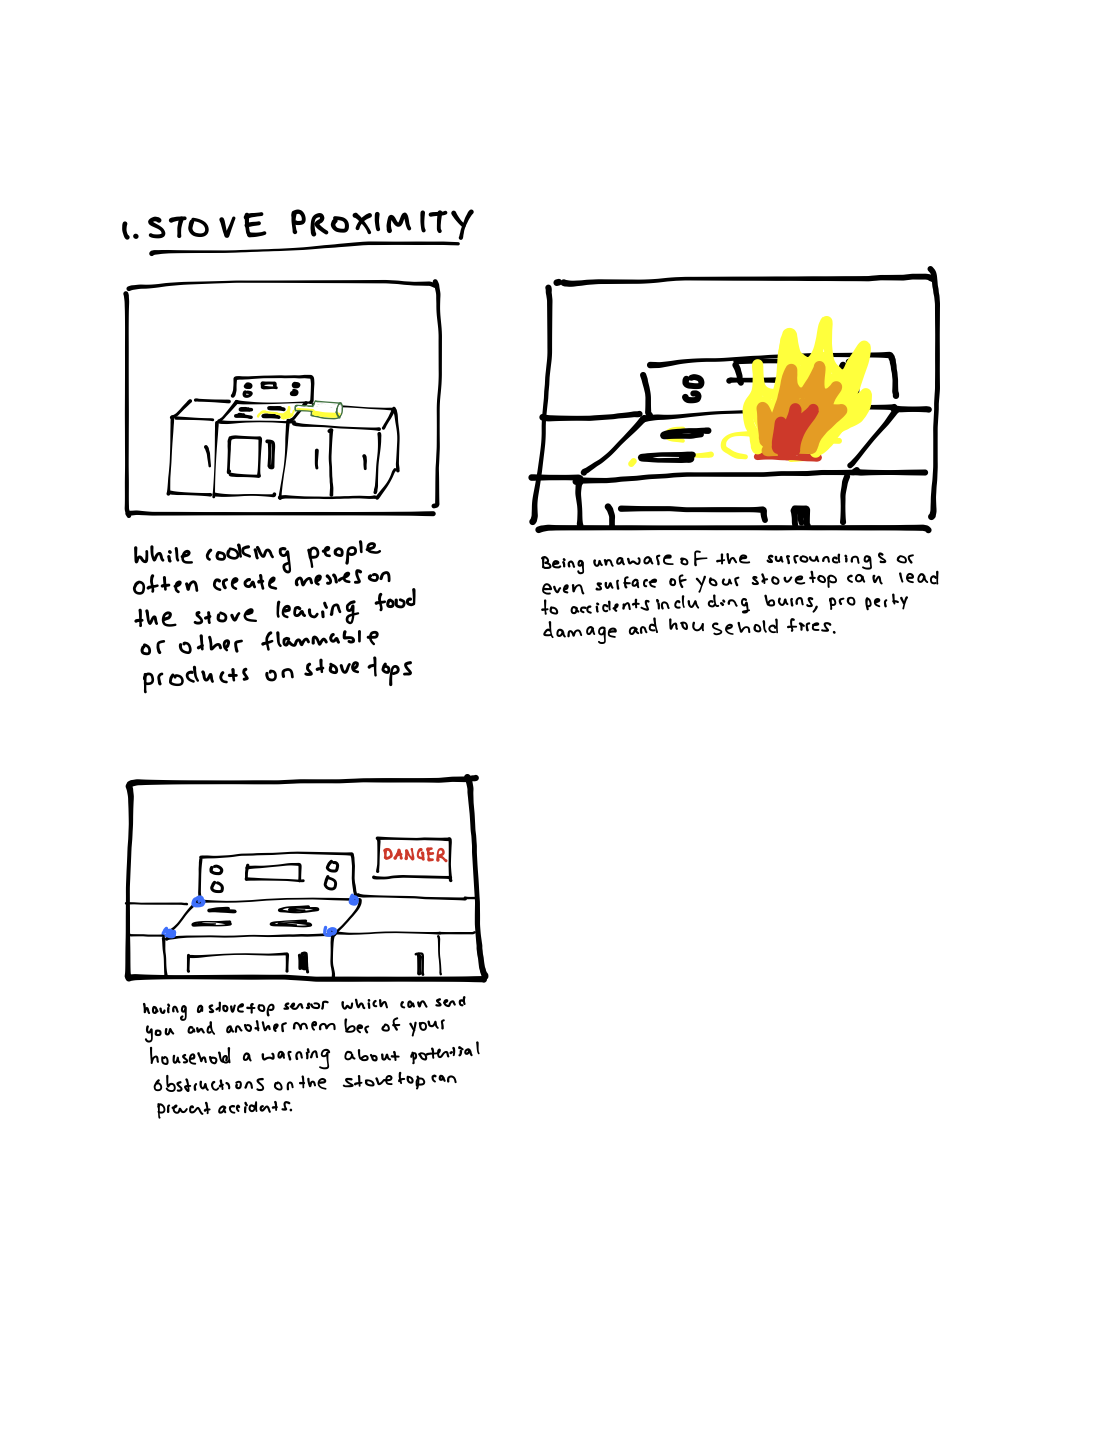 1. STOVE PROXIMITY
While cooking people
often create messes on
the stove leaving food
or other flammable
products on stove tops
Being unaware of the surroundings or
even surface of your stovetop can lead
to accidents including burns, property
damage and household fires.
DANGER
having a stovetop sensor which can send
you and another member of your
household a warning about potential
obstructions on the stovetop can
prevent accidents.